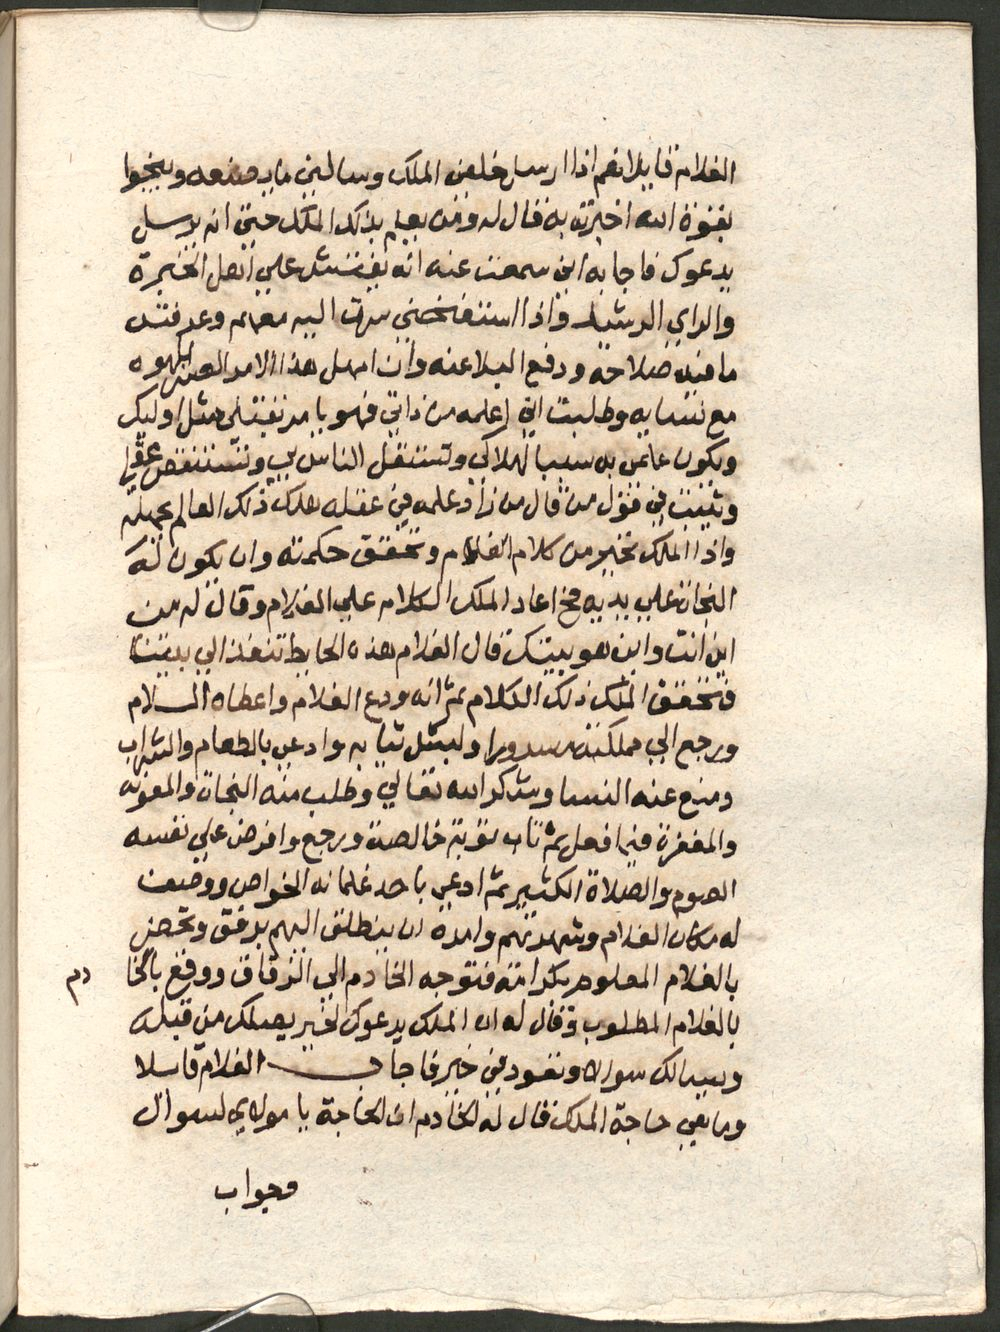 الغلام قايلا نعم اذا ارسل خلفي الملك وسالني ما يصنعه وينجوا
بقوة الله اخبرته به فقال له ومن يعلم بذلك الملك حتي انه يرسل
يدعوك فاجابه اني سمعت عنه انه يفتش علي اهل الخبرة
والراي الرشيد واذا استفحصني سرت اليه معهم وعرفته
ما فيه صلاحه ودفع البلا عنه وان اهمل هذا الامر لهوه
مع نسايه وطلبت اني اعلمه من ذاتي فهو يامر بقتلي مثل اوليك
ويكون علمي به سببا لهلاكي وتستقل الناس بي وتستنقص عقلي
وثبت في قول من قال من زاد علمه في عقله هلك ذلك العالم بجهله
واذا الملك تحير من كلام الغلام وتحقق حكمته وان يكون له
النجاة علي يديه فاعاد الملك الكلام علي الغلام وقال له من
اين انت واين هو بيتك قال الغلام هذه الحايط تنفذ الي بيتنا
فتحقق الملك ذلك الكلام ثم انه ودع الغلام واعطاه السلام
ورجع الي مملكته مسرورا ولبس ثيابه وادعي بالطعام والشراب
ومنع عنه النسا وشكر الله تعالي وطلب منه النجاة والمعونه
والمغفرة فيما فعل ثم تاب توبة خالصة ورجع وافرض علي نفسه
الصوم والصلاة الكثير ثم ادعي باحد غلمانه الخواص ووصف
له مكان الغلام وشهرتهم وامره ان ينطلق اليهم برفق ويحضر
بالغلام المعلوم بكرامة فتوجه الخادم الي الزقاق ووقع بالخا دم
بالغلام المطلوب وقال له ان الملك يدعوك لخير يصلك من قبله
ويسالك سوالا وتعود في خير فاجاب الغلام قايلا
وما هي حاجة الملك فقال له الخادم ان الحاجة يا مولاي لسوال
وجواب